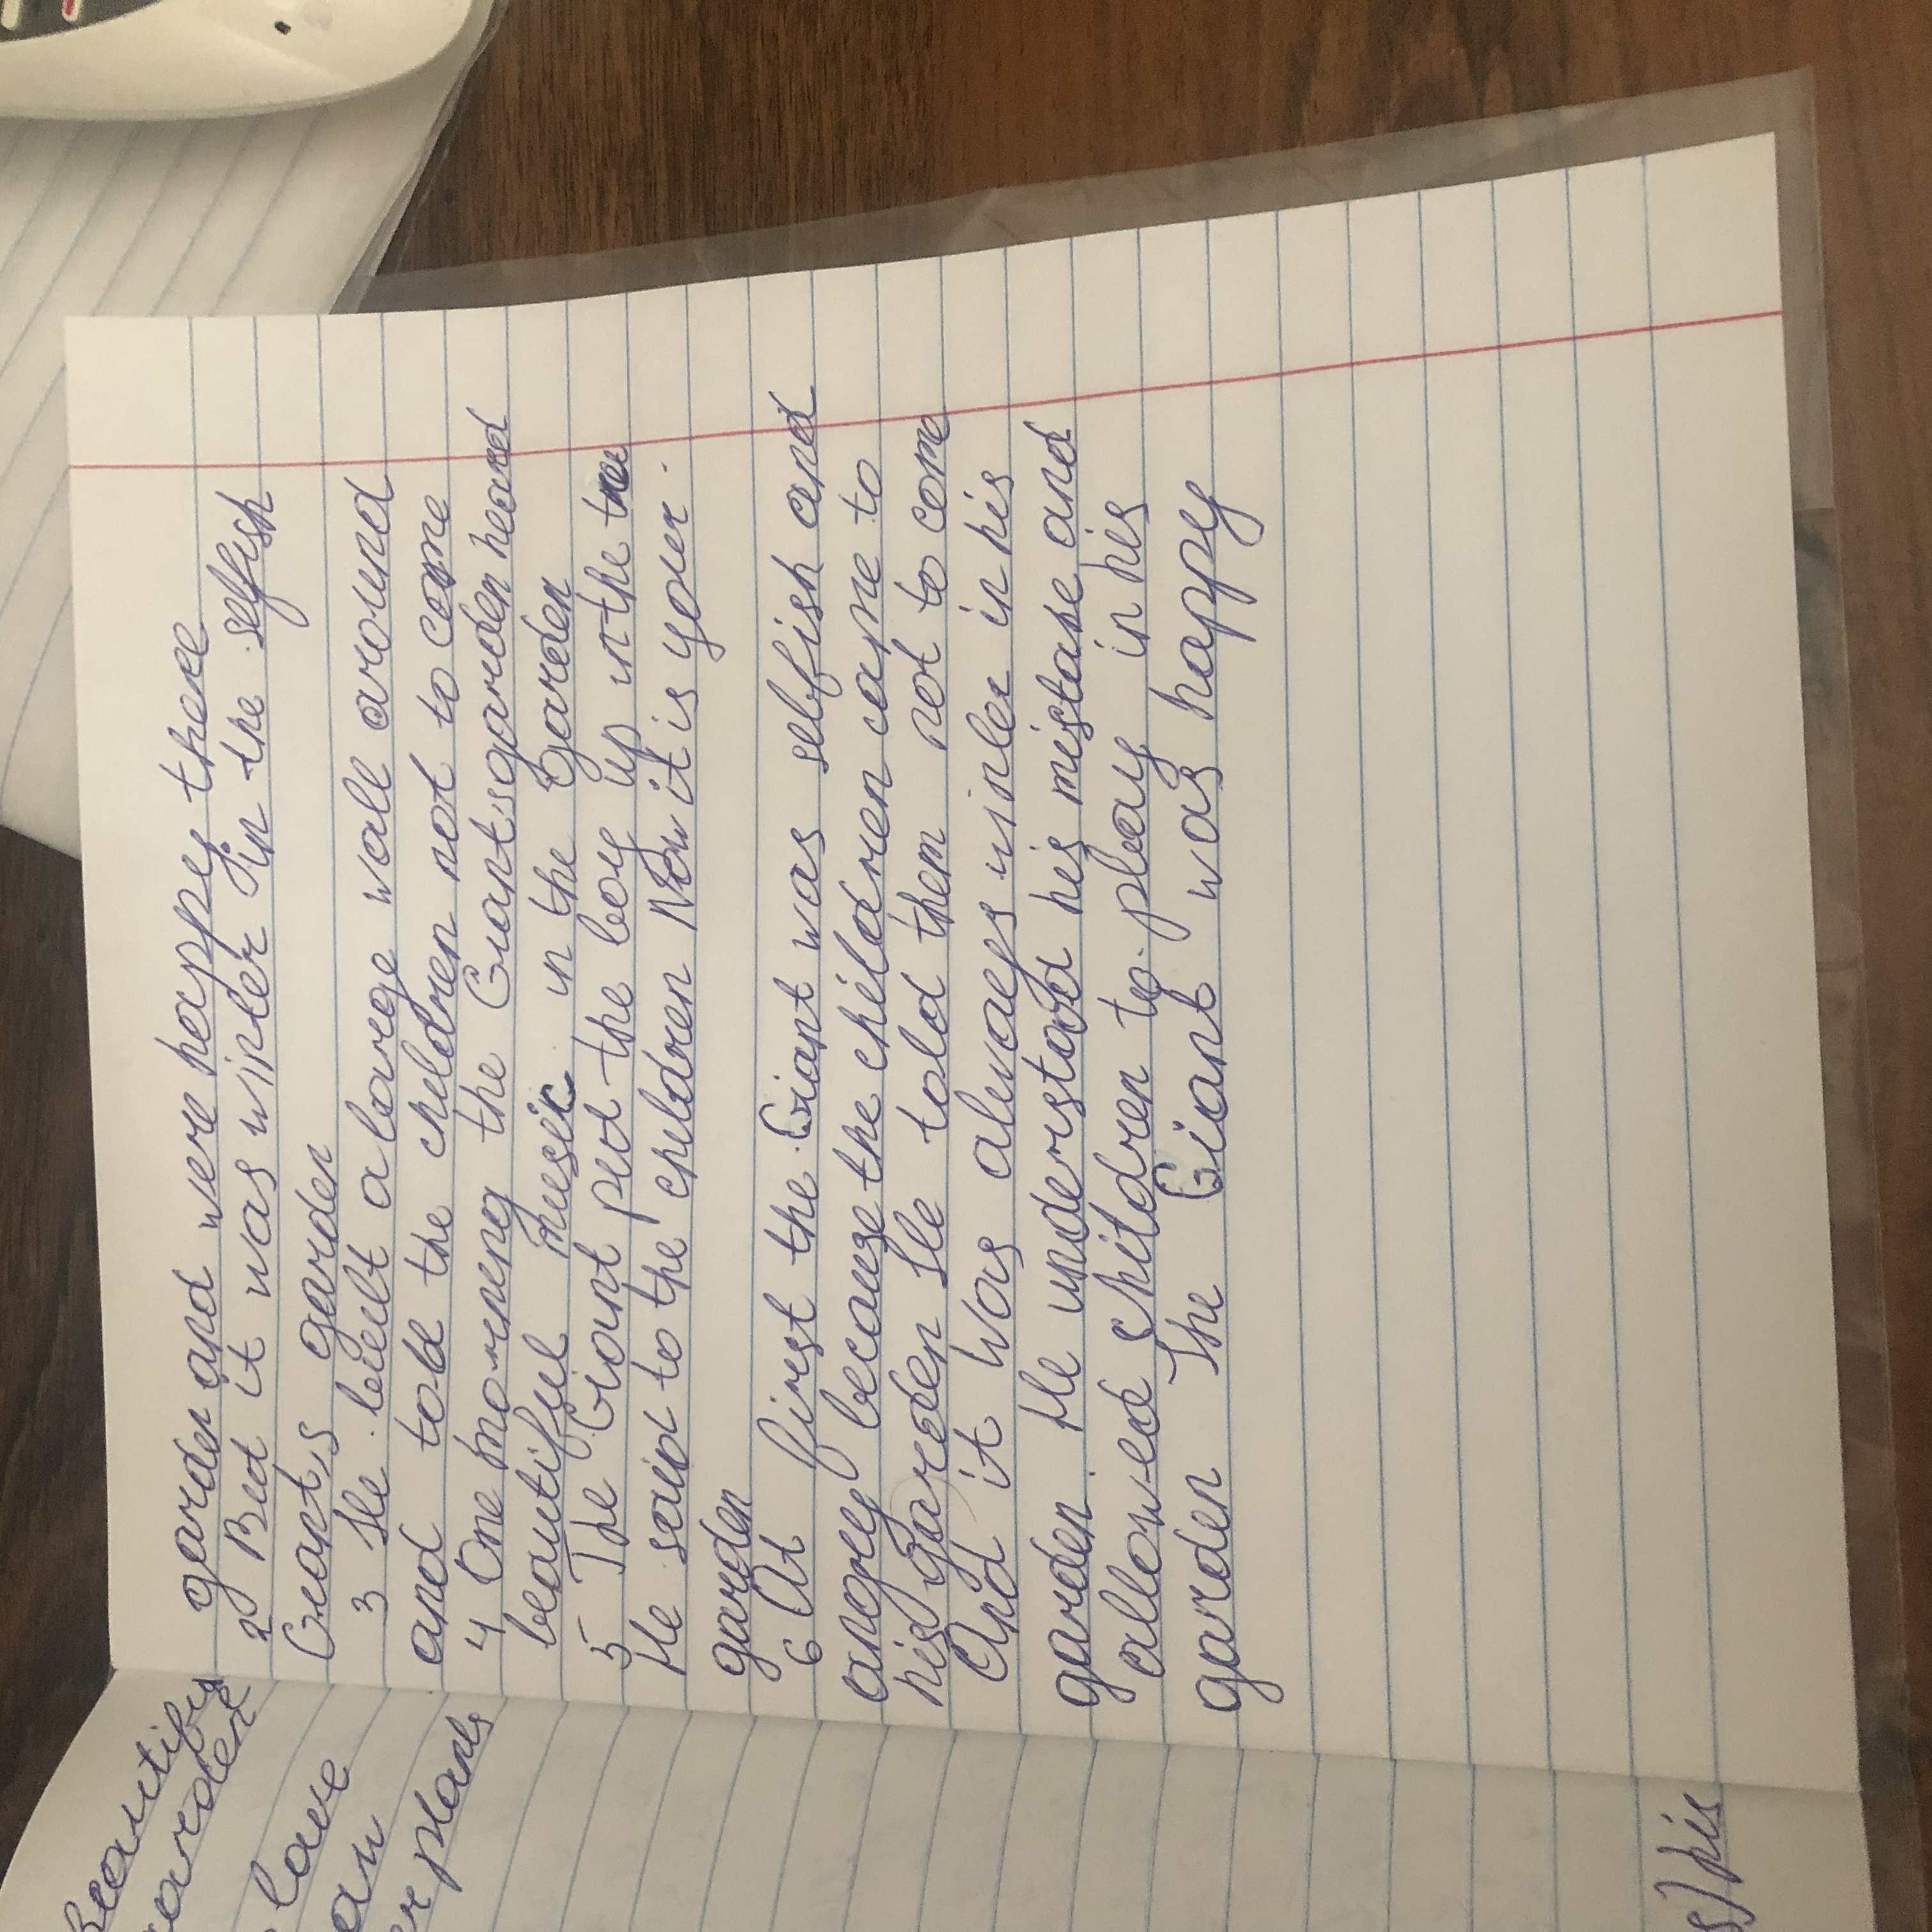 Beautiful
garden
love
er plants
s) his
garden and were happy there
2 But it was winter in the selfish
Giant,s garden
3 He built a large wall around
and told the children not to come
4 One morning the Giant,s garden heard
beautiful music in the Garden
5 The Giant put the boy up in the tree
He said to the children Now it is your
garden
6 At first the Giant was selfish and
angry because the children came to
his garden He told them not to come
And it was always winler in his
garden. He understood his mistake and
allowed children to play in his
garden The Giant was happy